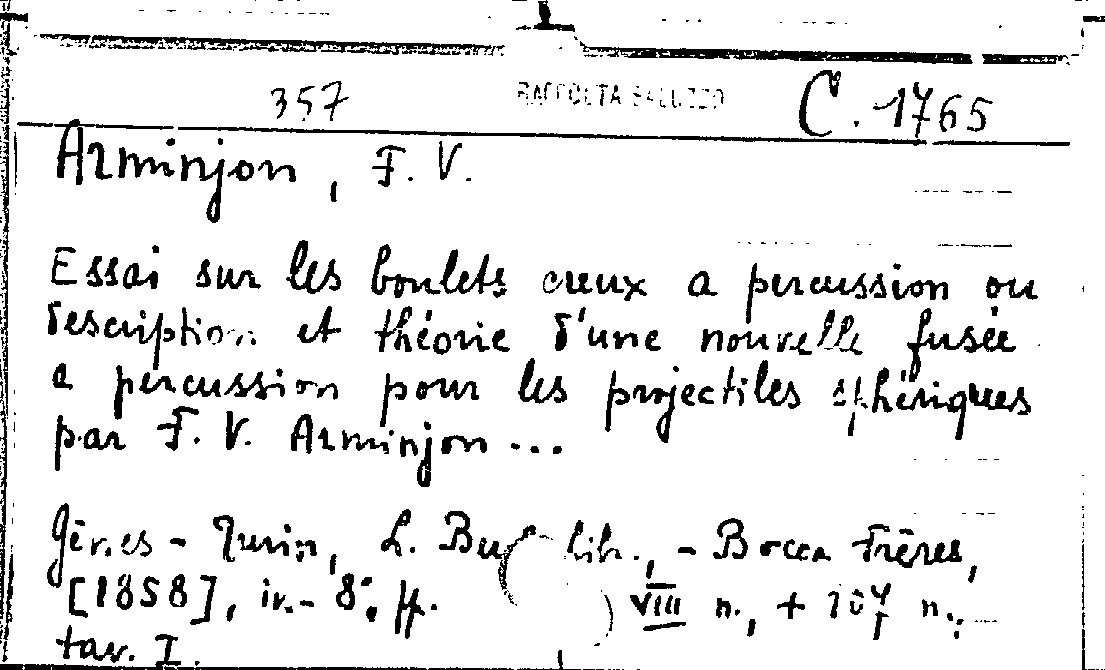 357 RACCOLTA SALUZZO C. 1765
Arminjon, F. V.
Essai sur les boulets creux a percussion ou
description et théorie d'une nouvelle fusée
a percussion pour les projectiles sphériques
par F. V. Arminjon...
Gênes - Turin, L. lib., - Bocca Frères,
[1858], in-8°, pp. VIII n., + 107 n.,
tav. I.